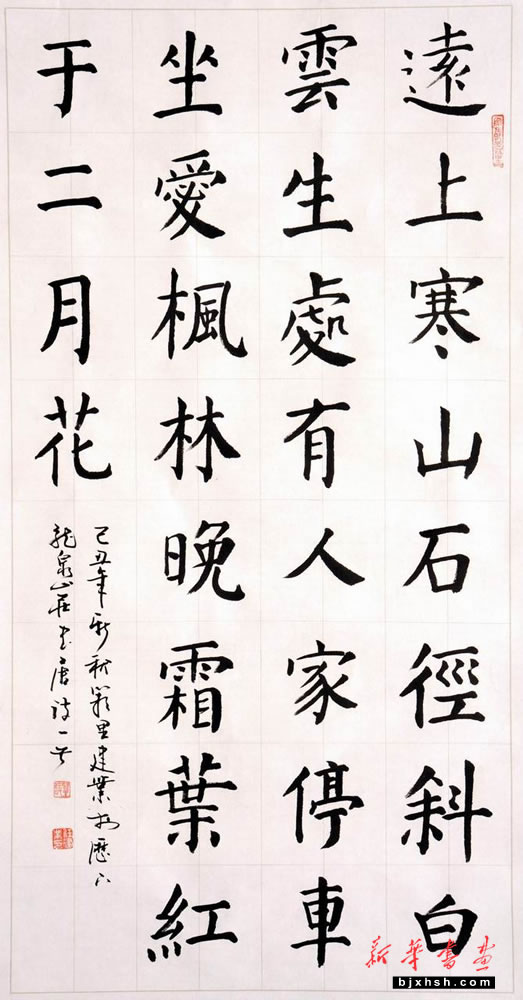 遠上寒山石徑斜白
雲生處有人家停車
坐愛楓林晚霜葉紅
于二月花
己丑年新秋里建業於歷下
龍泉山莊書唐詩一首
新華書畫
bjxhsh.com